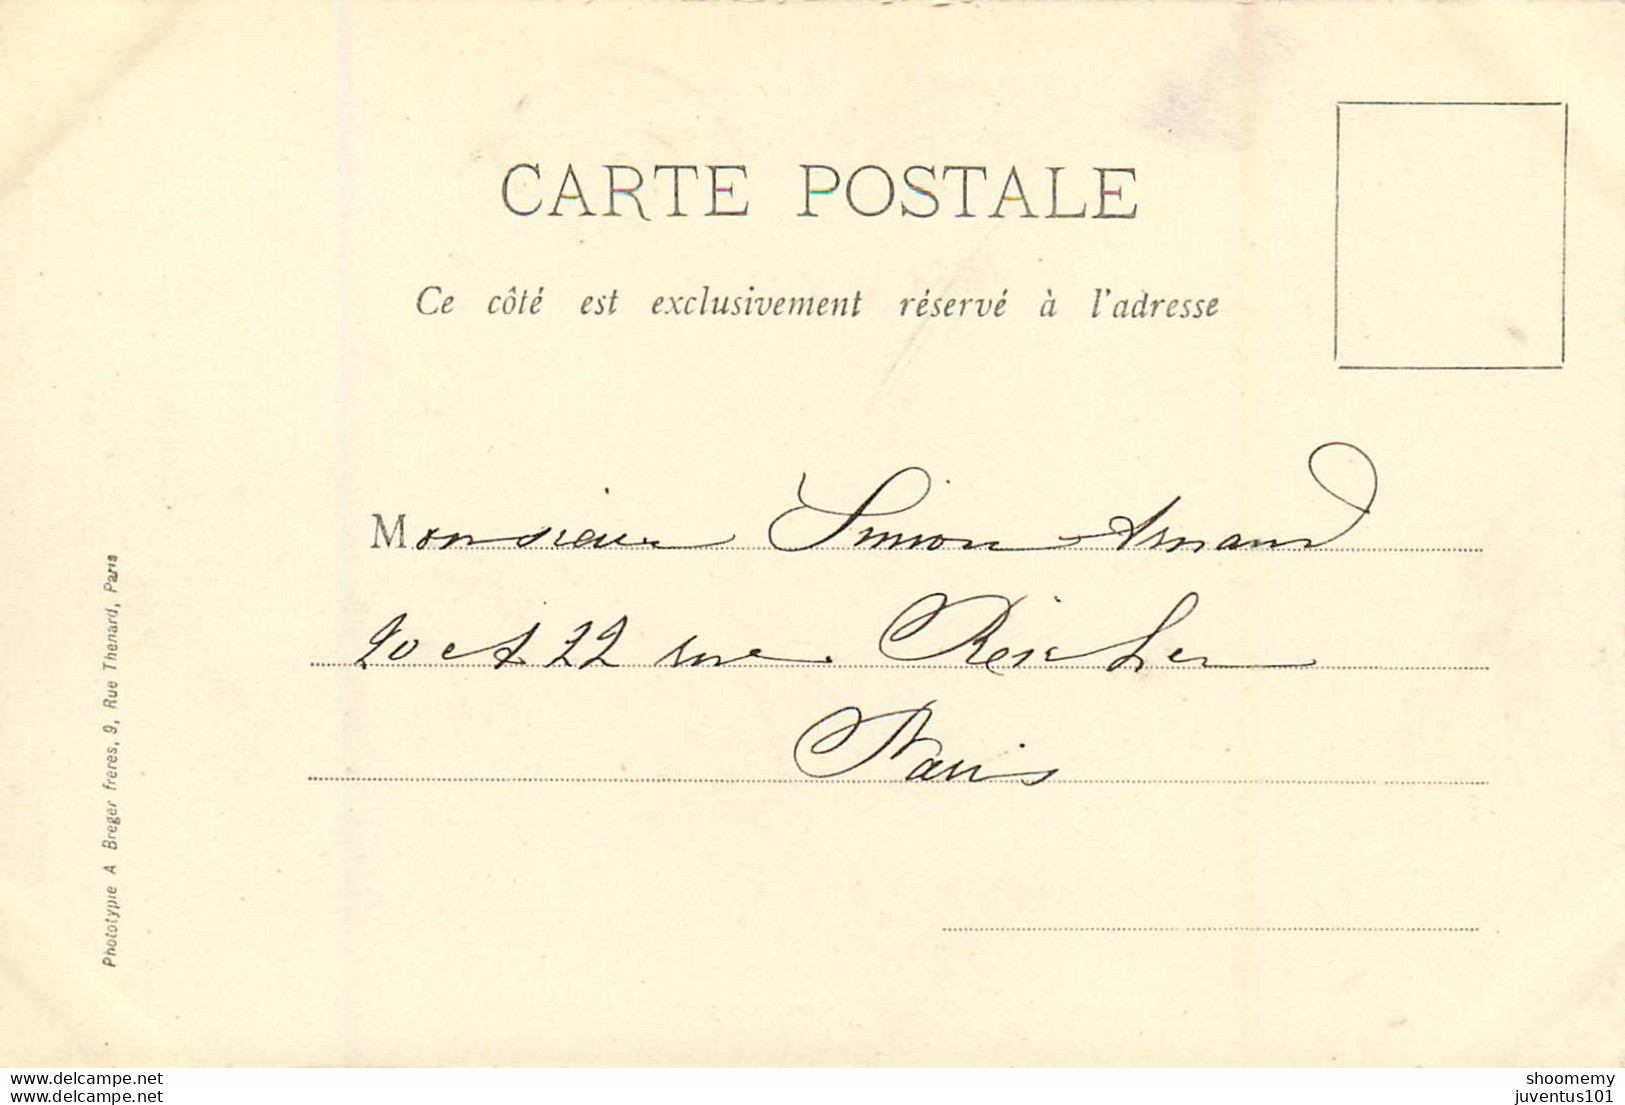 CARTE POSTALE
Ce côté est exclusivement réservé à l'adresse
Monsieur Simon Arnaud
20 et 22 rue Richer
Paris
Phototypie A Breger frères, 9, Rue Thenard, Paris
www.delcampe.net
www.delcampe.net
shoomemy
juventus101